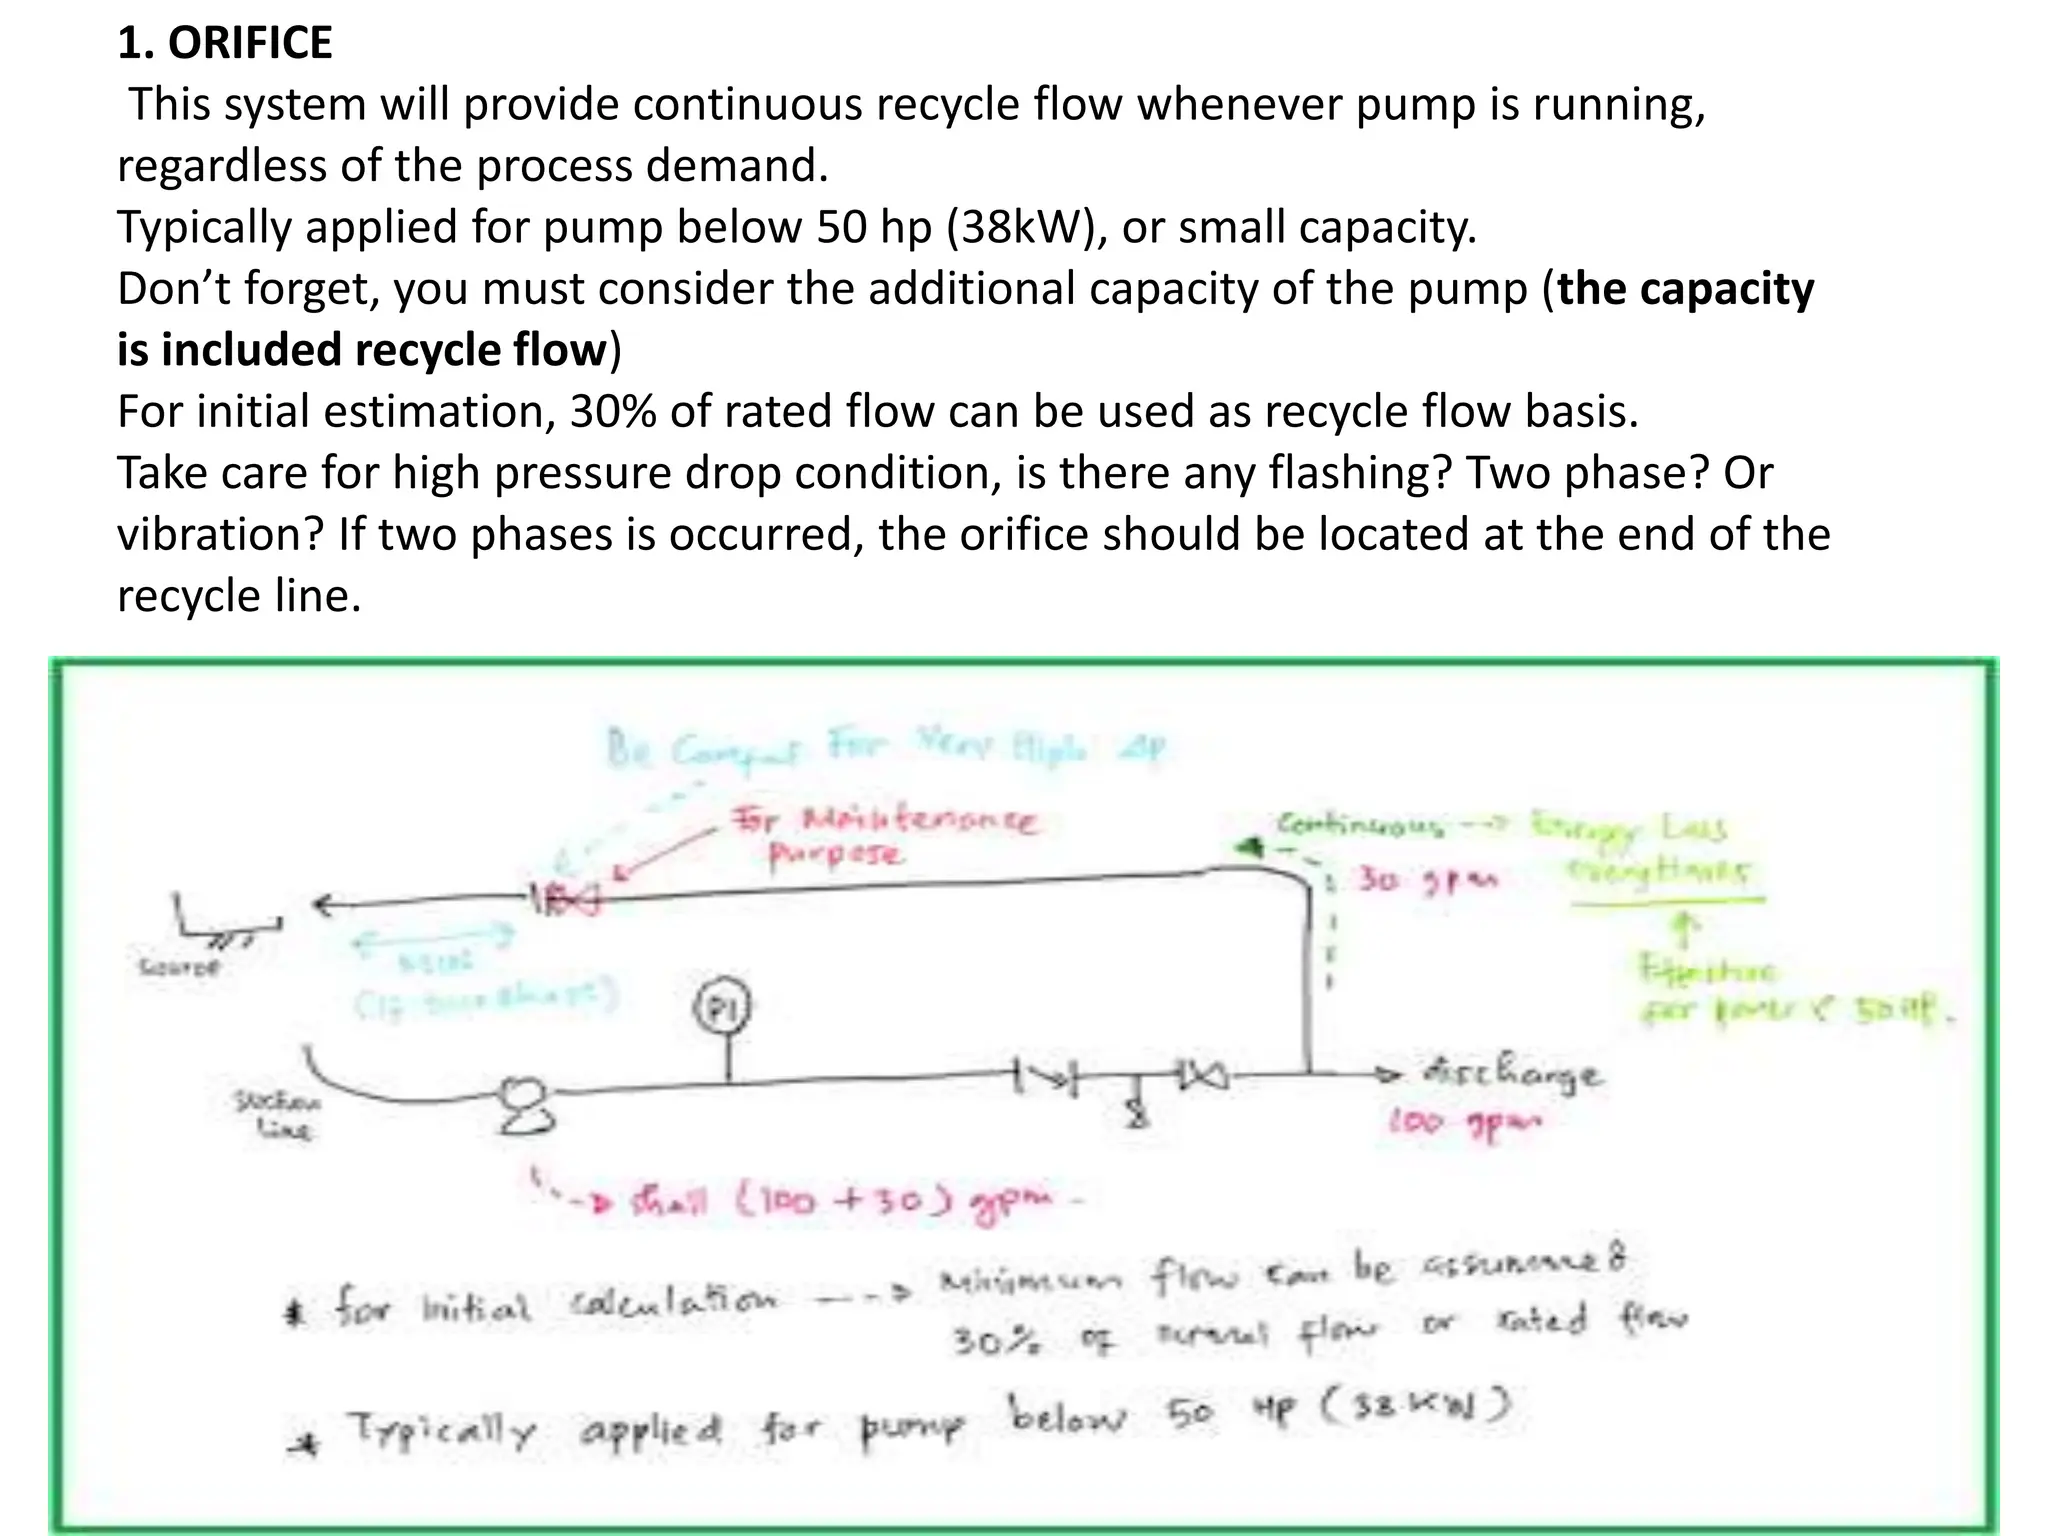 1. ORIFICE
This system will provide continuous recycle flow whenever pump is running,
regardless of the process demand.
Typically applied for pump below 50 hp (38kW), or small capacity.
Don’t forget, you must consider the additional capacity of the pump (the capacity
is included recycle flow)
For initial estimation, 30% of rated flow can be used as recycle flow basis.
Take care for high pressure drop condition, is there any flashing? Two phase? Or
vibration? If two phases is occurred, the orifice should be located at the end of the
recycle line.
Be For Very High ΔP
For Maintenance
purpose
Continuous Energy Loss
30 gpm
source
PI
for power < 50 HP.
suction
line
discharge
100 gpm
shall (100 + 30) gpm
* for initial calculation ---> minimum flow can be assumed
30% of normal flow or rated flow
* Typically applied for pump below 50 HP (38 KW)